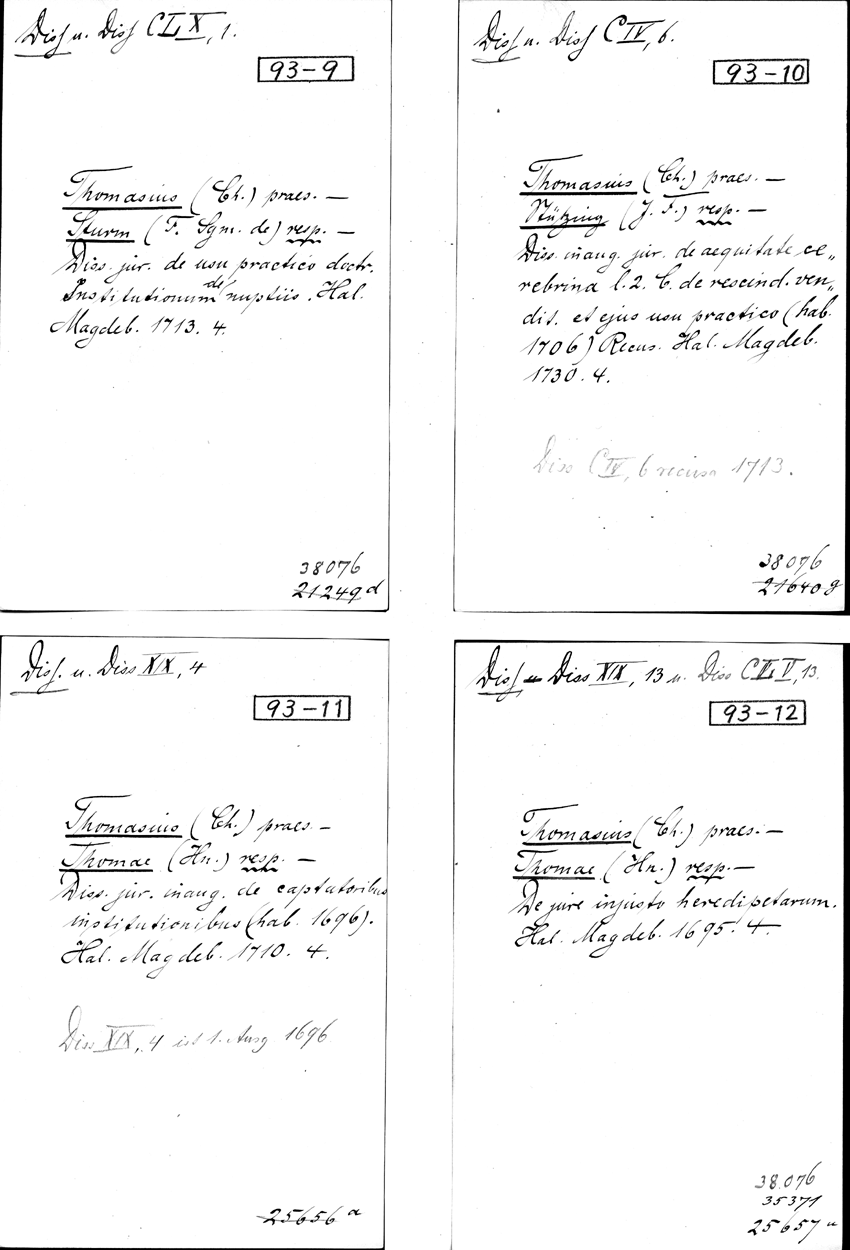 Diss u. Diss CLX, 1.
93-9
Thomasius (Ch.) praes. —
Sturm (F. Sgm. de) resp. —
Diss. jur. de usu practico doctr.
Institutionum de nuptiis. Hal.
Magdeb. 1713. 4.
38076
21249 d
Diss u. Diss CIV, 6.
93-10
Thomasius (Ch.) praes. —
Stützing (J. F.) resp. —
Diss. inaug. jur. de aequitate ce„
rebrina l. 2. C. de rescind. ven„
dit. et ejus usu practico (hab.
1706) Recus. Hal. Magdeb.
1730. 4.
Diss CIV, 6 recusa 1713.
38076
21640 g
Diss. u. Diss XIX, 4
93-11
Thomasius (Ch.) praes. —
Thomae (Hn.) resp. —
Diss. jur. inaug. de captatoribus
institutionibus (hab. 1696).
Hal. Magdeb. 1710. 4.
Diss XIX, 4 ist 1. Ausg 1696
25656 a
Diss u Diss XIX, 13 u. Diss 13.
93-12
Thomasius (Ch.) praes. —
Thomae (Hn.) resp. —
De jure injusto heredipetarum.
Hal. Magdeb. 1695. 4.
38.076
35371
25657 u